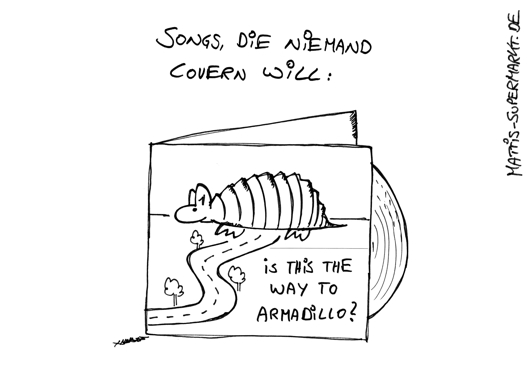 SONGS, DIE NIEMAND
COVERN WILL:
IS THIS THE
WAY TO
ARMADILLO?
MATTIS-SUPERMARKT.DE